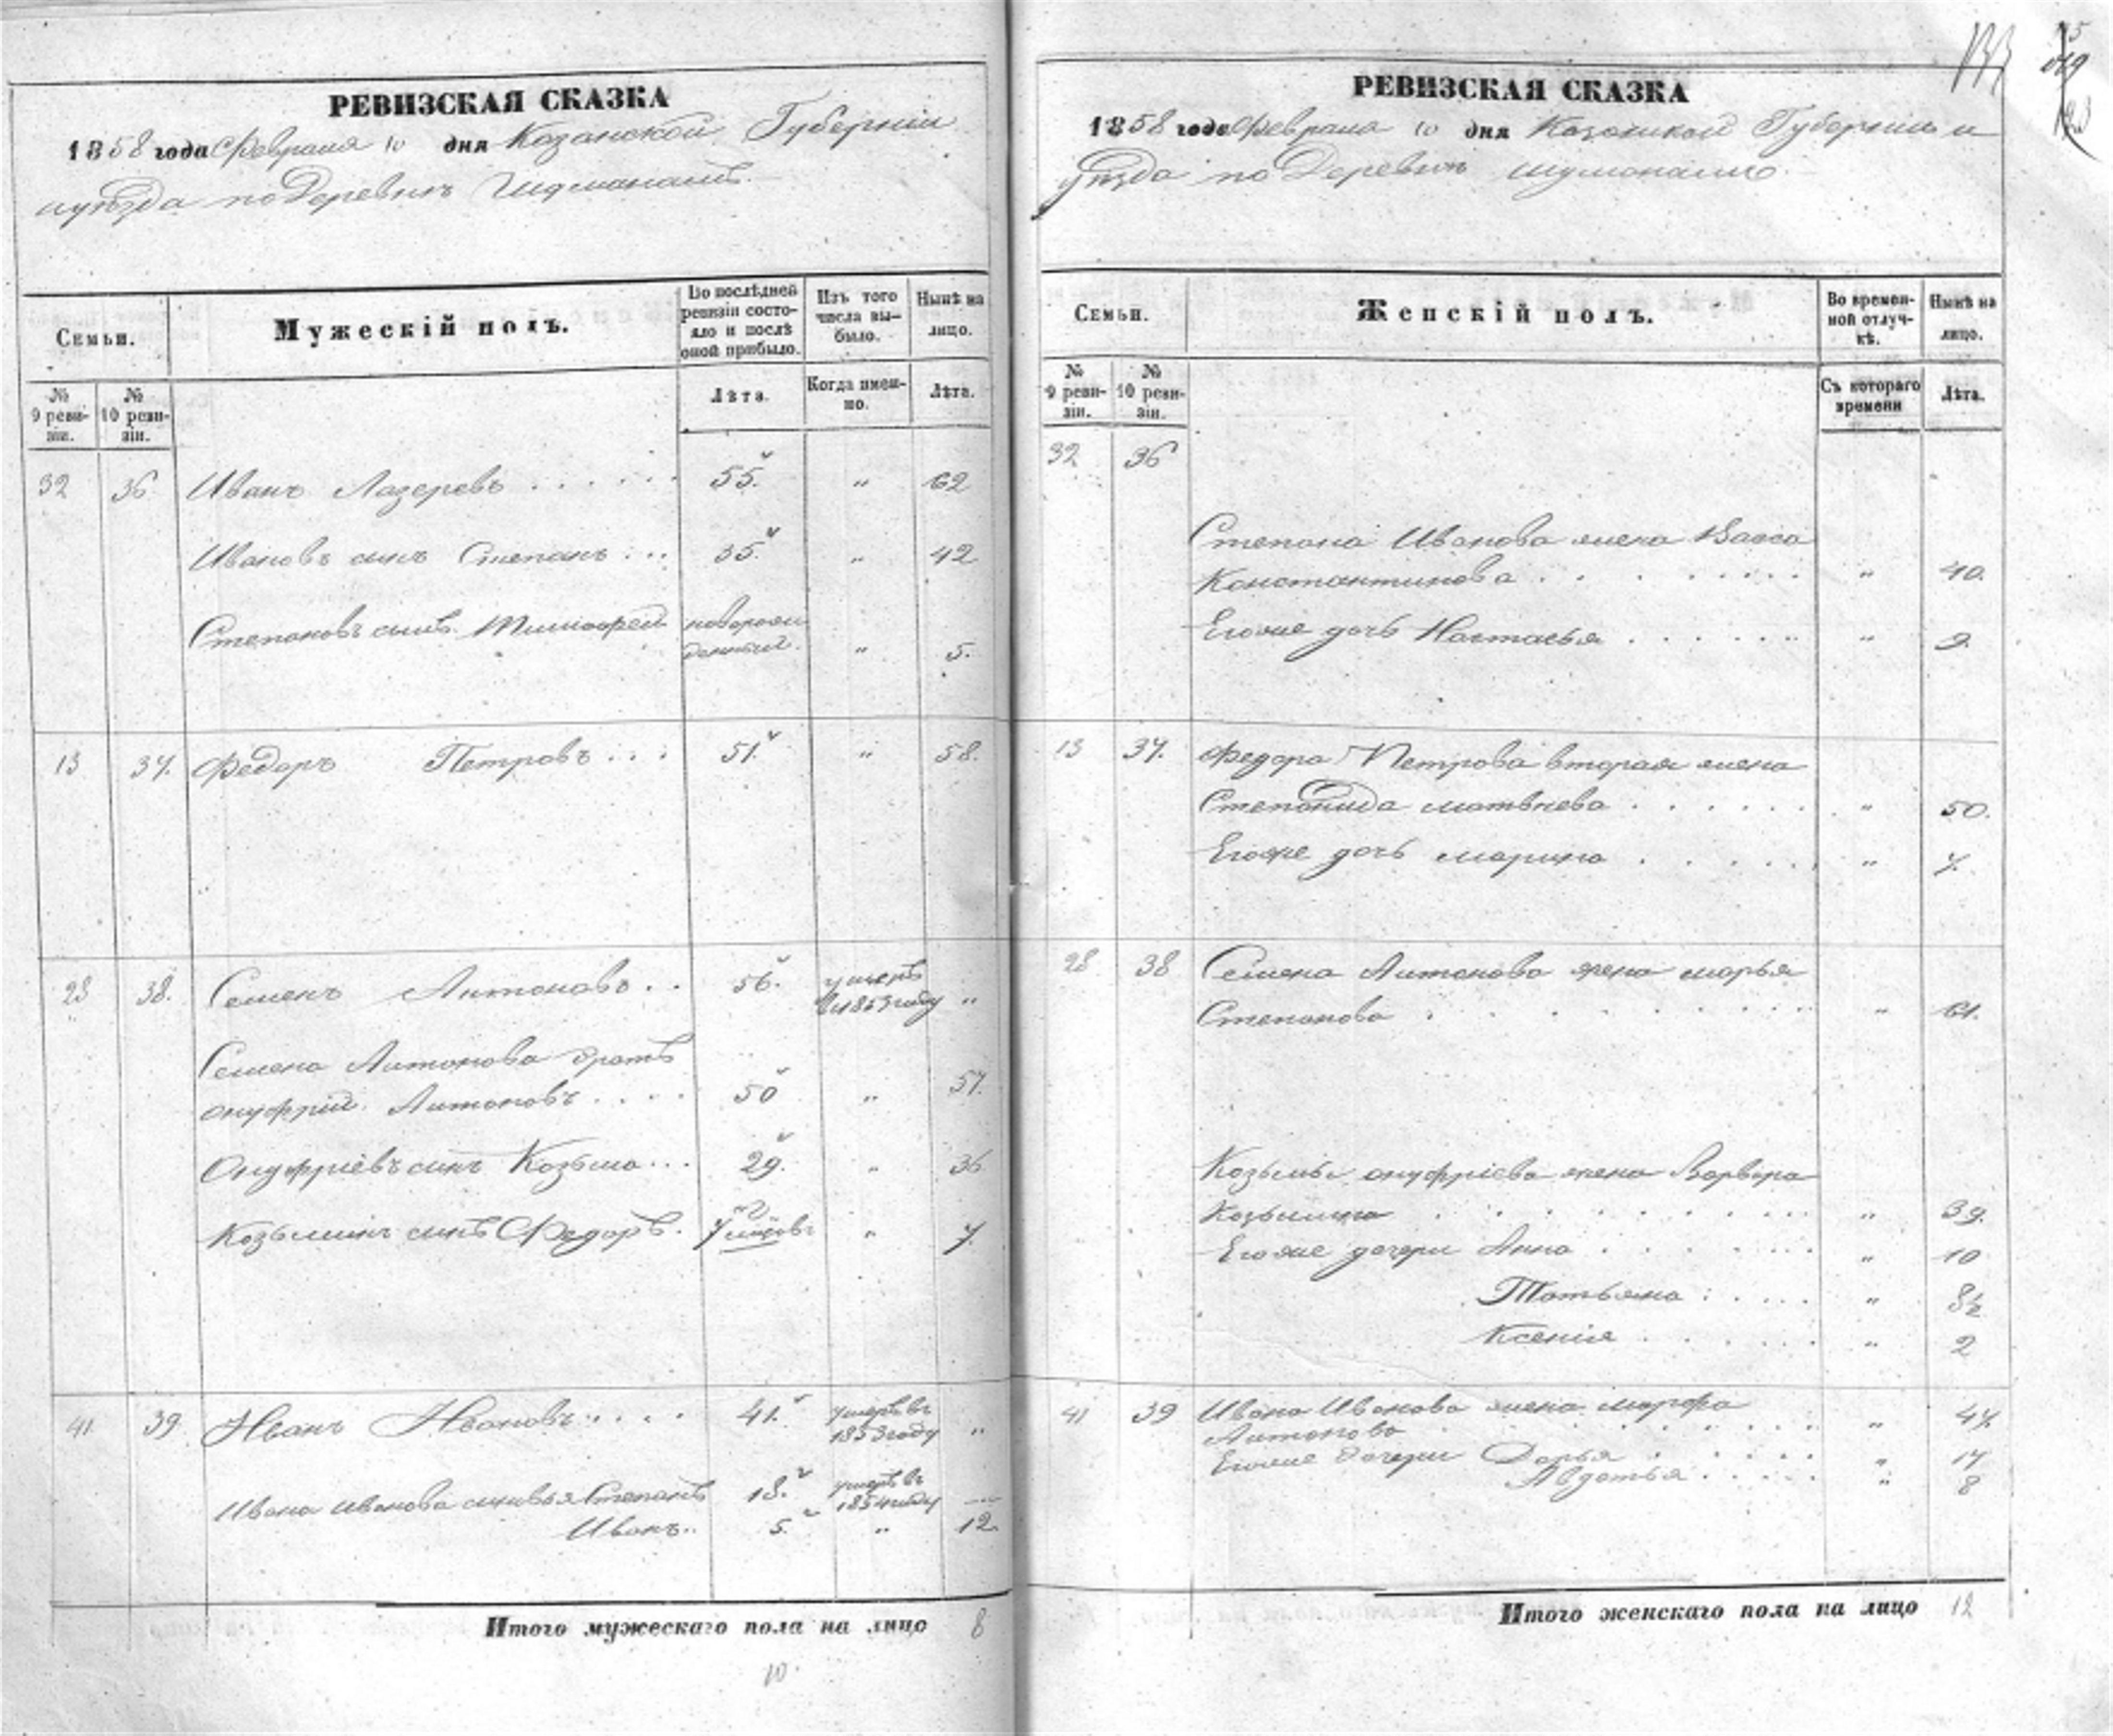 РЕВИЗСКАЯ СКАЗКА
1858 года Февраля 10 дня Казанской Губернiи
и уѣзда по Деревнѣ
Семьи.
Мужескiй полъ.
Во послѣдней ревизiи состояло и послѣ оной прибыло.
Изъ того числа выбыло.
Нынѣ на лицо.
№ 9 ревизiи.
№ 10 ревизiи.
Лѣта.
Когда именно.
Лѣта.
32 36 Иванъ Лазеревъ . . . . . . 55. " 62
Ивановъ сынъ Степанъ . . . 35. " 42
Степановъ сынъ Тимофей новорож
денный. " 5.
13 37. Федоръ Петровъ . . . 51. " 58.
28 38. Семенъ Антоновъ . . 56. умеръ
въ 1853 году "
Семена Антонова братъ
Онуфрiй Антоновъ . . . . 50 " 57.
Онуфрiевъ сынъ Козьма . . . 29. " 36
Козьминъ сынъ Федоръ . 7 мцовъ " 7.
41 39. Иванъ Ивановъ . . . . 41. умеръ въ
1853 году "
Ивана Иванова сыновья Степанъ 18. умеръ въ
1854 году
Иванъ . . 5. " 12.
Итого мужескаго пола на лицо 8
10.
РЕВИЗСКАЯ СКАЗКА
1858 года Февраля 10 дня Казанской Губернiи и
уѣзда по Деревнѣ
Семьи.
Женскiй полъ.
Во временной отлучкѣ.
Нынѣ на лицо.
№ 9 ревизiи.
№ 10 ревизiи.
Съ котораго времени
Лѣта.
32 36
Степана Иванова жена Васса
Константинова . . . . . . . " 40.
Его же дочь Настасья . . . . . . " 9.
13 37. Федора Петрова вторая жена
Степанида Матвѣева . . . . . . " 50.
Его же дочь Марина . . . . . " 7.
28 38 Семена Антонова жена Марья
Степанова . . . . . . . . " 61.
Козьмы Онуфрiева жена Варвара
Козьмина . . . . . . . . " 39.
Его же дочери Анна . . . . . . " 10
Татьяна . . . . . " 8½
Ксенiя . . . . . " 2
41 39 Ивана Иванова жена Марфа
Антонова . . . . . . . . " 47.
Его же дочери Дарья . . . . . " 17
Авдотья . . . . . " 8
Итого женскаго пола на лицо 12